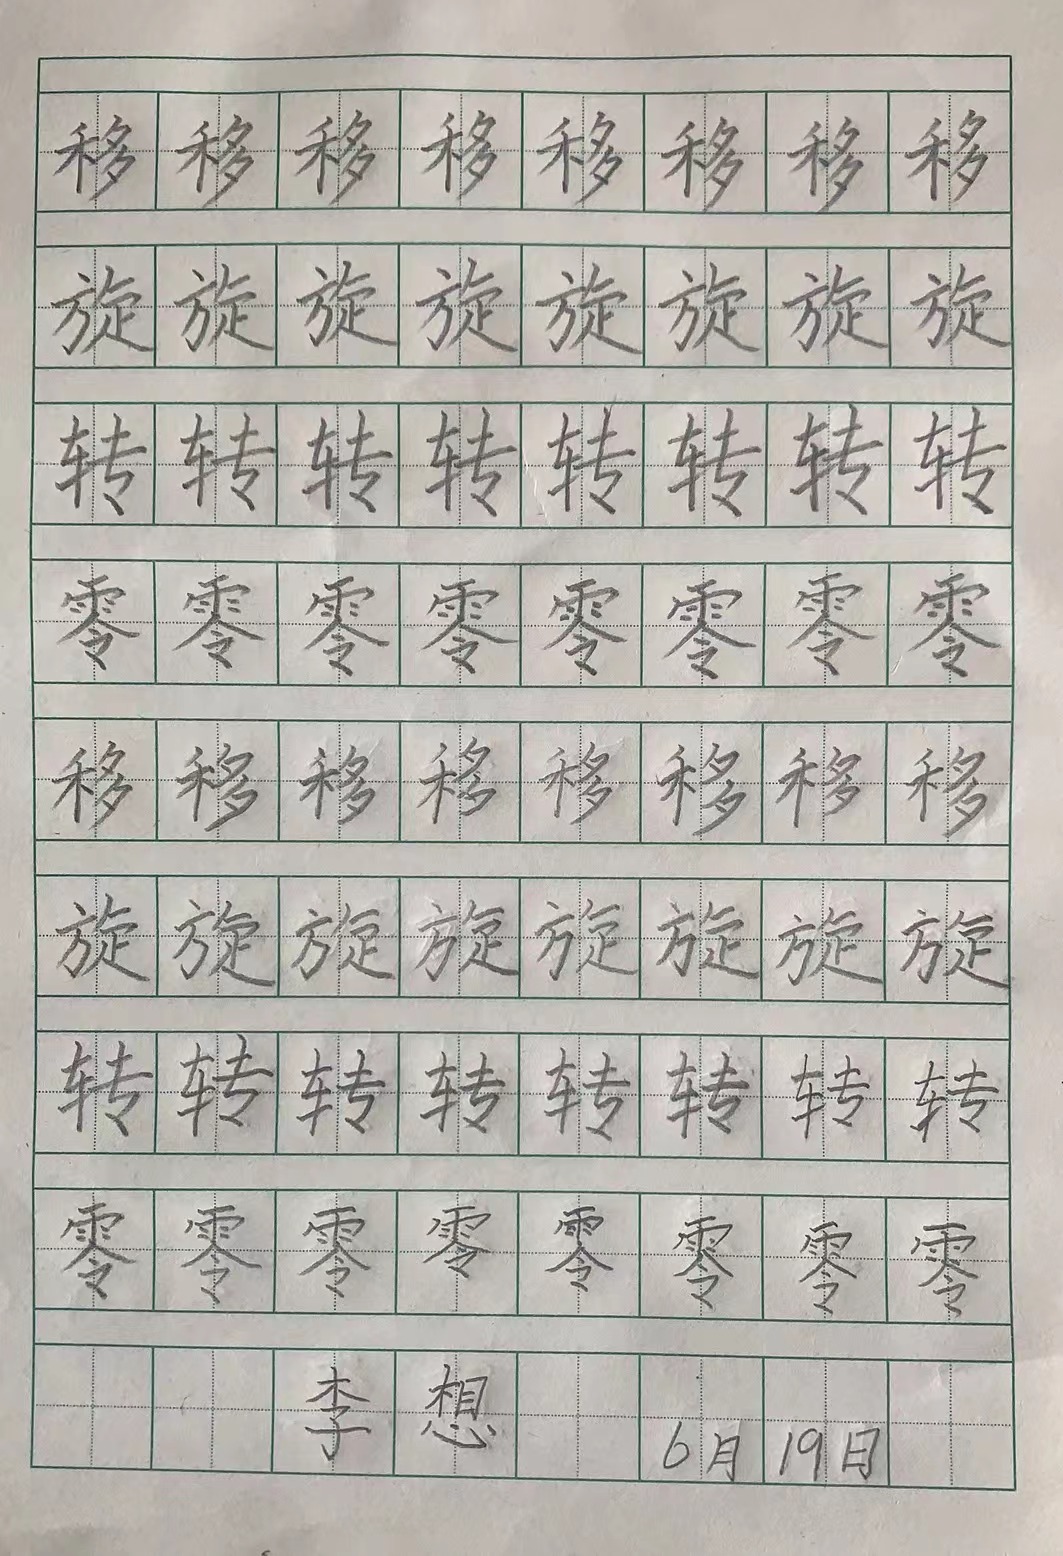 移移移移移移移移
旋旋旋旋旋旋旋旋
转转转转转转转转
零零零零零零零零
移移移移移移移移
旋旋旋旋旋旋旋旋
转转转转转转转转
零零零零零零零零
李想 6月19日